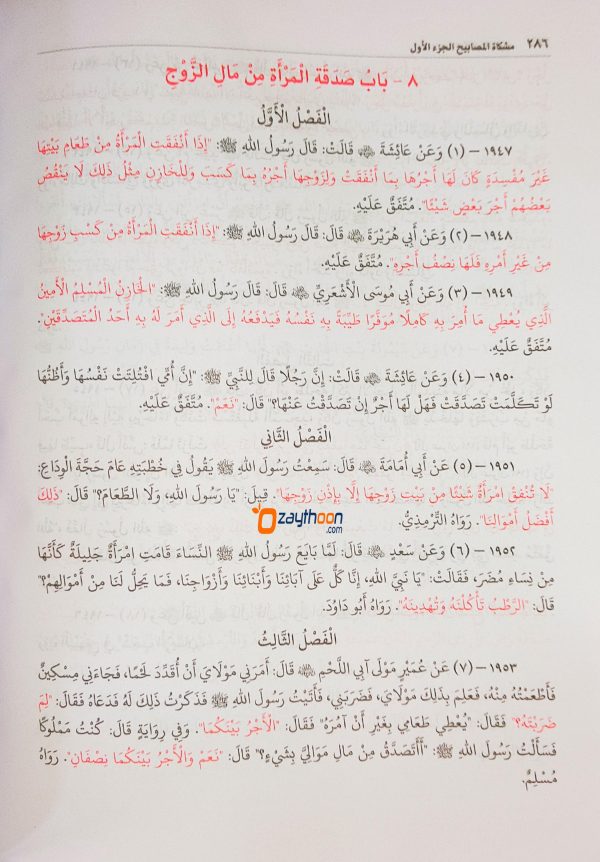 ٢٨٦ مشكاة المصابيح الجزء الأول
٨ – بَابُ صَدَقَةِ الْمَرْأَةِ مِنْ مَالِ الزَّوْجِ
الْفَصْلُ الْأَوَّلُ
١٩٤٧ – (١) وَعَنْ عَائِشَةَ ﵂ قَالَتْ: قَالَ رَسُولُ اللهِ ﷺ: "إِذَا أَنْفَقَتِ الْمَرْأَةُ مِنْ طَعَامِ بَيْتِهَا
غَيْرَ مُفْسِدَةٍ كَانَ لَهَا أَجْرُهَا بِمَا أَنْفَقَتْ وَلِزَوْجِهَا أَجْرُهُ بِمَا كَسَبَ وَلِلْخَازِنِ مِثْلُ ذَلِكَ لَا يَنْقُصُ
بَعْضُهُمْ أَجْرَ بَعْضٍ شَيْئًا". مُتَّفَقٌ عَلَيْهِ.
١٩٤٨ – (٢) وَعَنْ أَبِي هُرَيْرَةَ ﵁ قَالَ: قَالَ رَسُولُ اللهِ ﷺ: "إِذَا أَنْفَقَتِ الْمَرْأَةُ مِنْ كَسْبِ زَوْجِهَا
مِنْ غَيْرِ أَمْرِهِ فَلَهَا نِصْفُ أَجْرِهِ". مُتَّفَقٌ عَلَيْهِ.
١٩٤٩ – (٣) وَعَنْ أَبِي مُوسَى الْأَشْعَرِيِّ ﵁ قَالَ: قَالَ رَسُولُ اللهِ ﷺ: "الْخَازِنُ الْمُسْلِمُ الْأَمِينُ
الَّذِي يُعْطِي مَا أُمِرَ بِهِ كَامِلًا مُوَفَّرًا طَيِّبَةً بِهِ نَفْسُهُ فَيَدْفَعُهُ إِلَى الَّذِي أُمِرَ لَهُ بِهِ أَحَدُ الْمُتَصَدِّقَيْنِ".
مُتَّفَقٌ عَلَيْهِ.
١٩٥٠ – (٤) وَعَنْ عَائِشَةَ ﵂ قَالَتْ: إِنَّ رَجُلًا قَالَ لِلنَّبِيِّ ﷺ: "إِنَّ أُمِّي افْتُلِتَتْ نَفْسُهَا وَأَظُنُّهَا
لَوْ تَكَلَّمَتْ تَصَدَّقَتْ فَهَلْ لَهَا أَجْرٌ إِنْ تَصَدَّقْتُ عَنْهَا؟" قَالَ: "نَعَمْ". مُتَّفَقٌ عَلَيْهِ.
الْفَصْلُ الثَّانِي
١٩٥١ – (٥) عَنْ أَبِي أُمَامَةَ ﵁ قَالَ: سَمِعْتُ رَسُولَ اللهِ ﷺ يَقُولُ فِي خُطْبَتِهِ عَامَ حَجَّةِ الْوَدَاعِ:
"لَا تُنْفِقِ امْرَأَةٌ شَيْئًا مِنْ بَيْتِ زَوْجِهَا إِلَّا بِإِذْنِ زَوْجِهَا". قِيلَ: "يَا رَسُولَ اللهِ، وَلَا الطَّعَامَ؟" قَالَ: "ذَلِكَ
أَفْضَلُ أَمْوَالِنَا". رَوَاهُ التِّرْمِذِيُّ.
zaythoon
.com
١٩٥٢ – (٦) وَعَنْ سَعْدٍ ﵁ قَالَ: لَمَّا بَايَعَ رَسُولُ اللهِ ﷺ النِّسَاءَ قَامَتِ امْرَأَةٌ جَلِيلَةٌ كَأَنَّهَا
مِنْ نِسَاءِ مُضَرَ، فَقَالَتْ: "يَا نَبِيَّ اللهِ، إِنَّا كَلٌّ عَلَى آبَائِنَا وَأَبْنَائِنَا وَأَزْوَاجِنَا، فَمَا يَحِلُّ لَنَا مِنْ أَمْوَالِهِمْ؟"
قَالَ: "الرَّطْبُ تَأْكُلْنَهُ وَتُهْدِينَهُ". رَوَاهُ أَبُو دَاوُدَ.
الْفَصْلُ الثَّالِثُ
١٩٥٣ – (٧) عَنْ عُمَيْرٍ مَوْلَى آبِي اللَّحْمِ ﵁ قَالَ: أَمَرَنِي مَوْلَايَ أَنْ أُقَدِّدَ لَحْمًا، فَجَاءَنِي مِسْكِينٌ
فَأَطْعَمْتُهُ مِنْهُ، فَعَلِمَ بِذَلِكَ مَوْلَايَ، فَضَرَبَنِي، فَأَتَيْتُ رَسُولَ اللهِ ﷺ فَذَكَرْتُ ذَلِكَ لَهُ فَدَعَاهُ فَقَالَ: "لِمَ
ضَرَبْتَهُ؟" فَقَالَ: "يُعْطِي طَعَامِي بِغَيْرِ أَنْ آمُرَهُ" فَقَالَ: "الْأَجْرُ بَيْنَكُمَا". وَفِي رِوَايَةٍ قَالَ: كُنْتُ مَمْلُوكًا
فَسَأَلْتُ رَسُولَ اللهِ ﷺ: "أَأَتَصَدَّقُ مِنْ مَالِ مَوَالِيَّ بِشَيْءٍ؟" قَالَ: "نَعَمْ وَالْأَجْرُ بَيْنَكُمَا نِصْفَانِ". رَوَاهُ
مُسْلِمٌ.